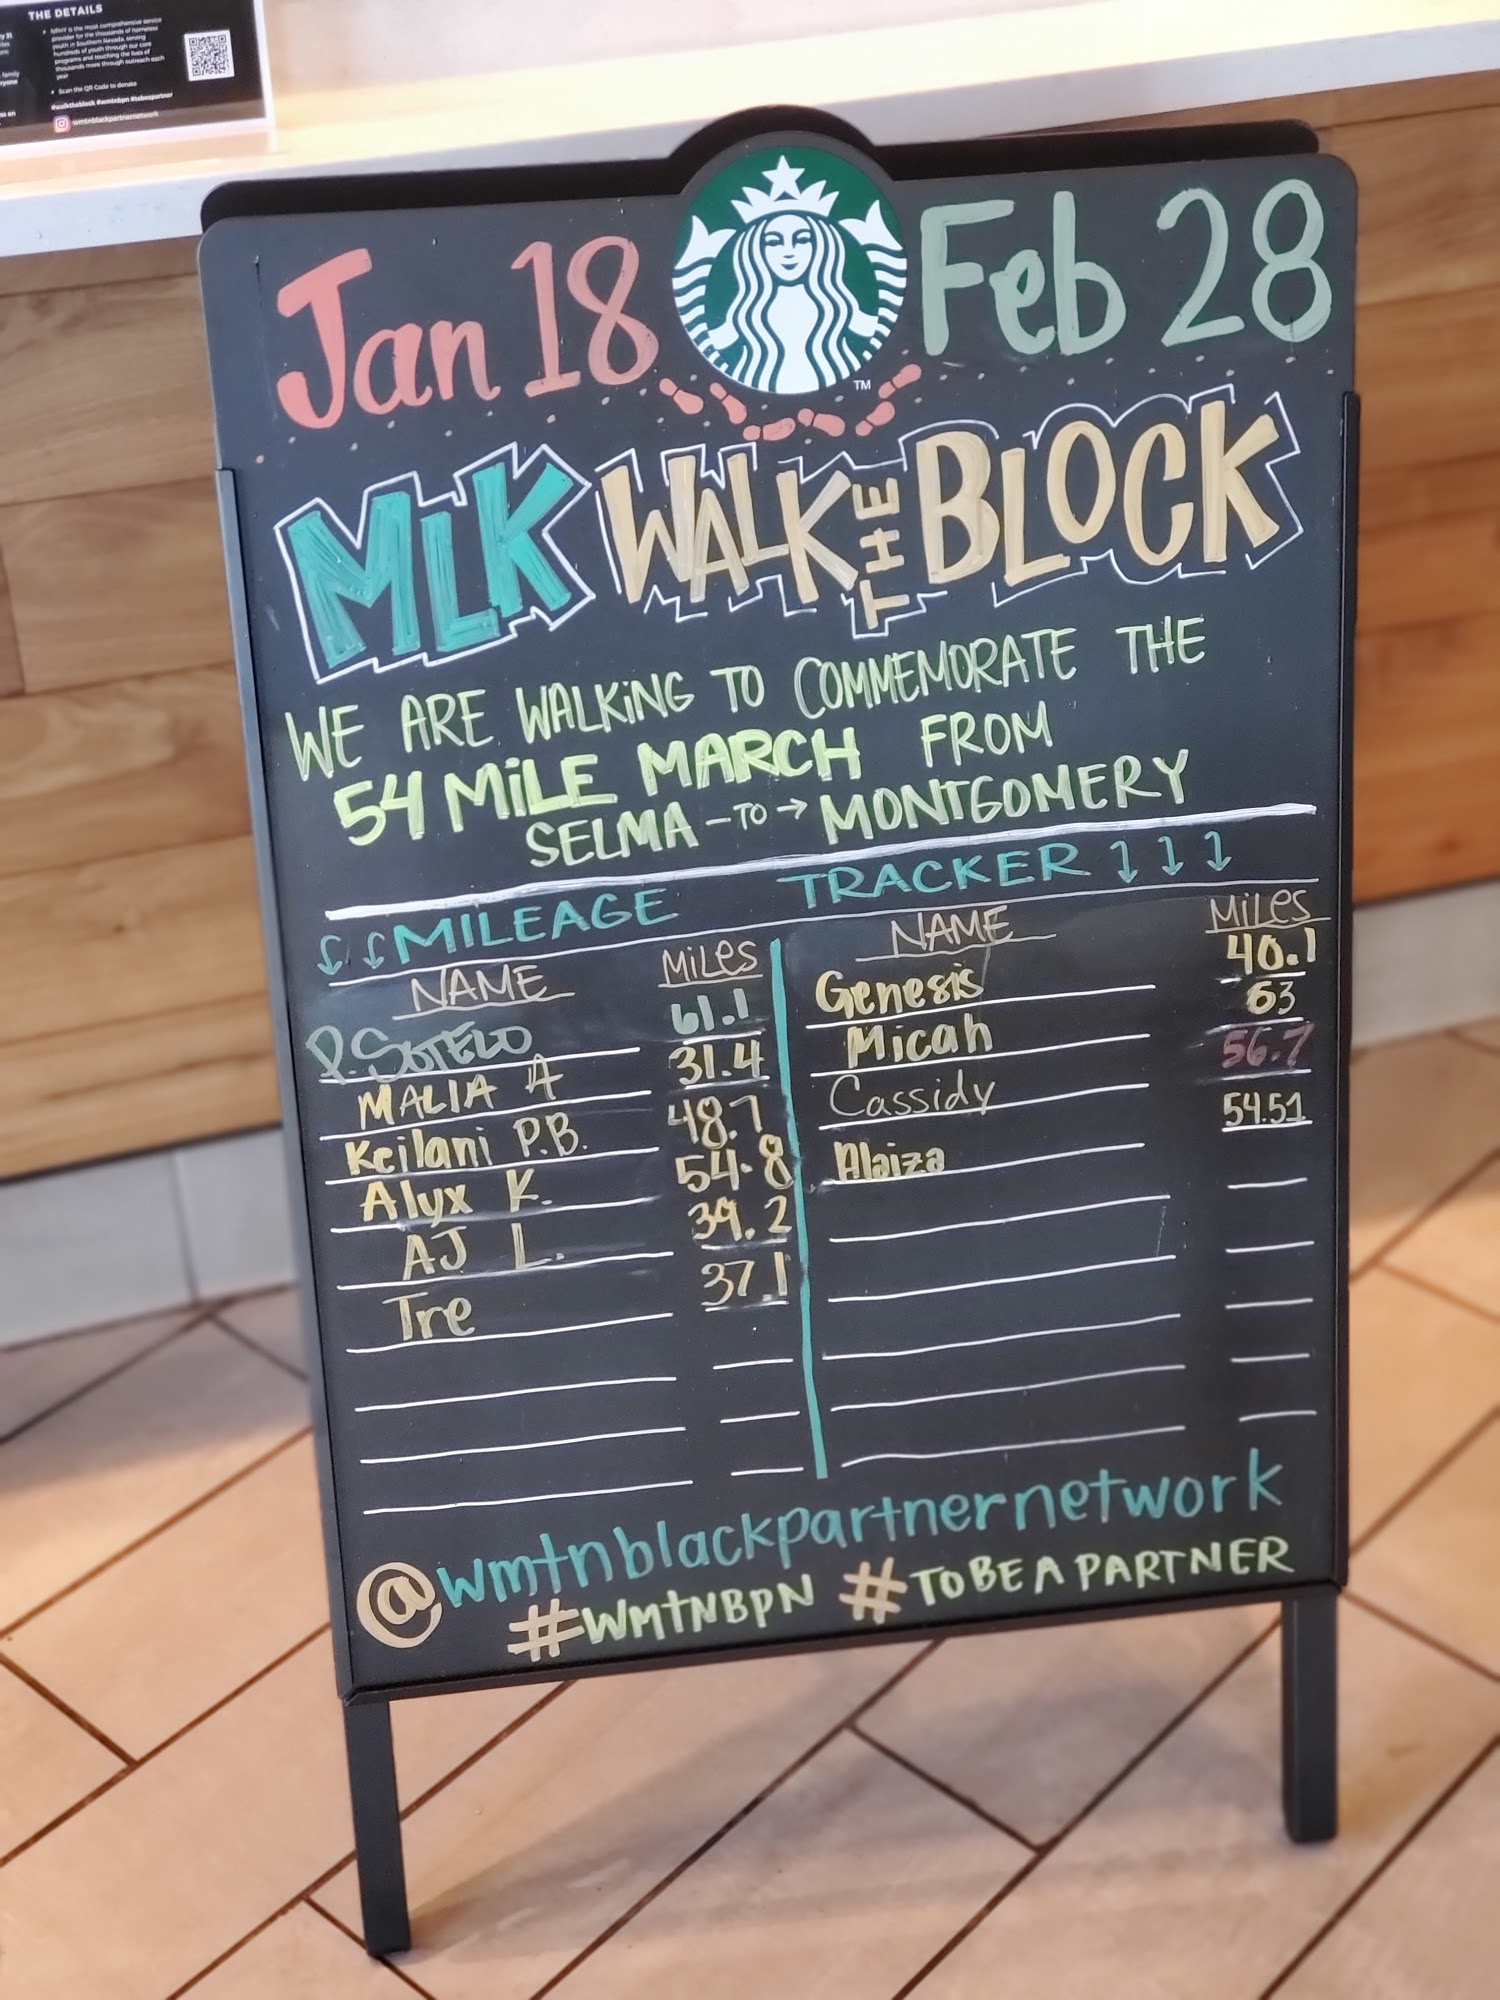 THE DETAILS
NPHY is the most comprehensive service
provider for the thousands of homeless
youth in Southern Nevada, serving
hundreds of youth through our core
programs and touching the lives of
thousands more through outreach each
year
Scan the QR Code to donate
#walktheblock #wmtnbpn #tobeapartner
wmtnblackpartnernetwork
Jan 18 Feb 28
TM
MLK WALK THE BLOCK
WE ARE WALKING TO COMMEMORATE THE
54 MILE MARCH FROM
SELMA -TO→ MONTGOMERY
MILEAGE TRACKER
NAME MILES
P. SOTELO 61.1
MALIA A 31.4
Keilani P.B. 48.7
Alyx K. 54.8
AJ L. 39.2
Tre 37.1
NAME MILES
Genesis 40.1
Micah 63
Cassidy 56.7
Alaiza 54.51
@wmtnblackpartnernetwork
#WMTNBPN #TOBEAPARTNER